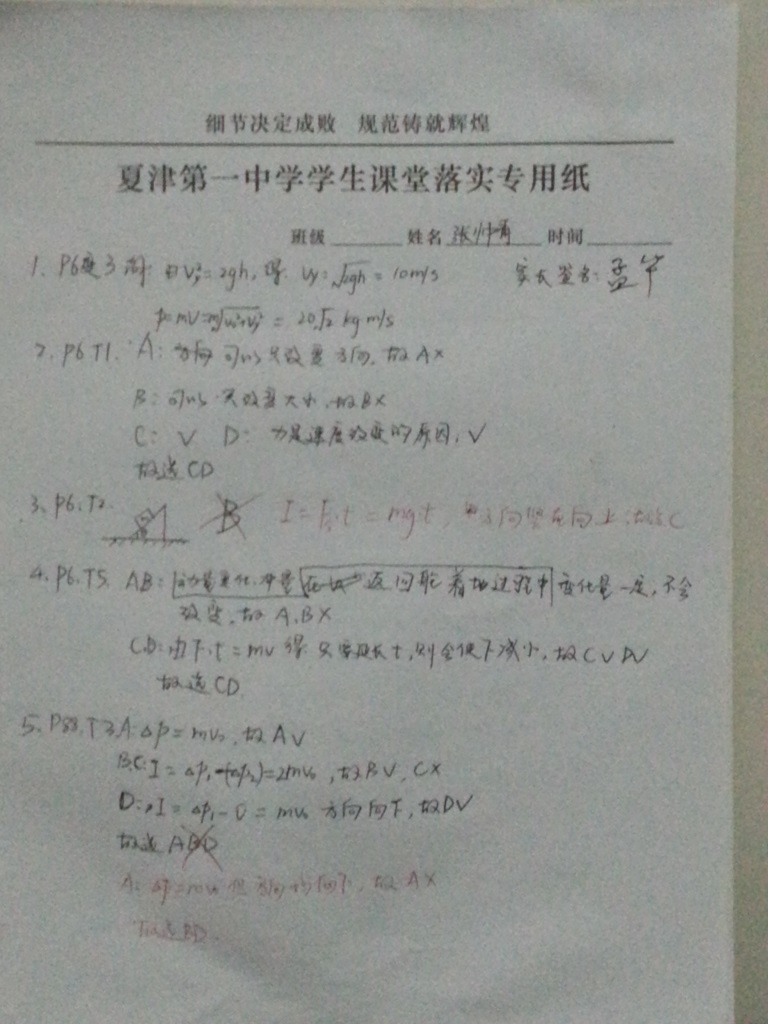 细节决定成败 规范铸就辉煌
夏津第一中学学生课堂落实专用纸
班级 姓名 张帅 时间
1. P6 问: 由 Vy²=2gh, 得 Vy=√2gh = 10m/s 家长签名: 孟
p=mv=m√v₀²+vy² = 20√2 kg m/s
2. P6 T1. A: 方向 可以只改变方向, 故A×
B: 可以 只改变大小, 故B×
C: √ D: 力是速度改变的原因, √
故选CD
3. P6. T2. B I = t = mg t, 方向竖直向上, 故选C
4. P6. T5. AB: 动量变化, 冲量 着地过程中 变化量一定, 不会
改变, 故 A.B×
C.D: 由F·t = mv 得 只要延长t, 则会使F减小, 故C√ D√
故选CD
5. P88. T3. A. Δp = mv₀, 故A√
B.C: I = Δp₁-(-Δp₂)=2mv₀, 故B√, C×
D: I = Δp₁-0 = mv₀ 方向向下, 故D√
故选ABD
A: Δp=mv₀ 但方向均向下, 故A×
故选BD.